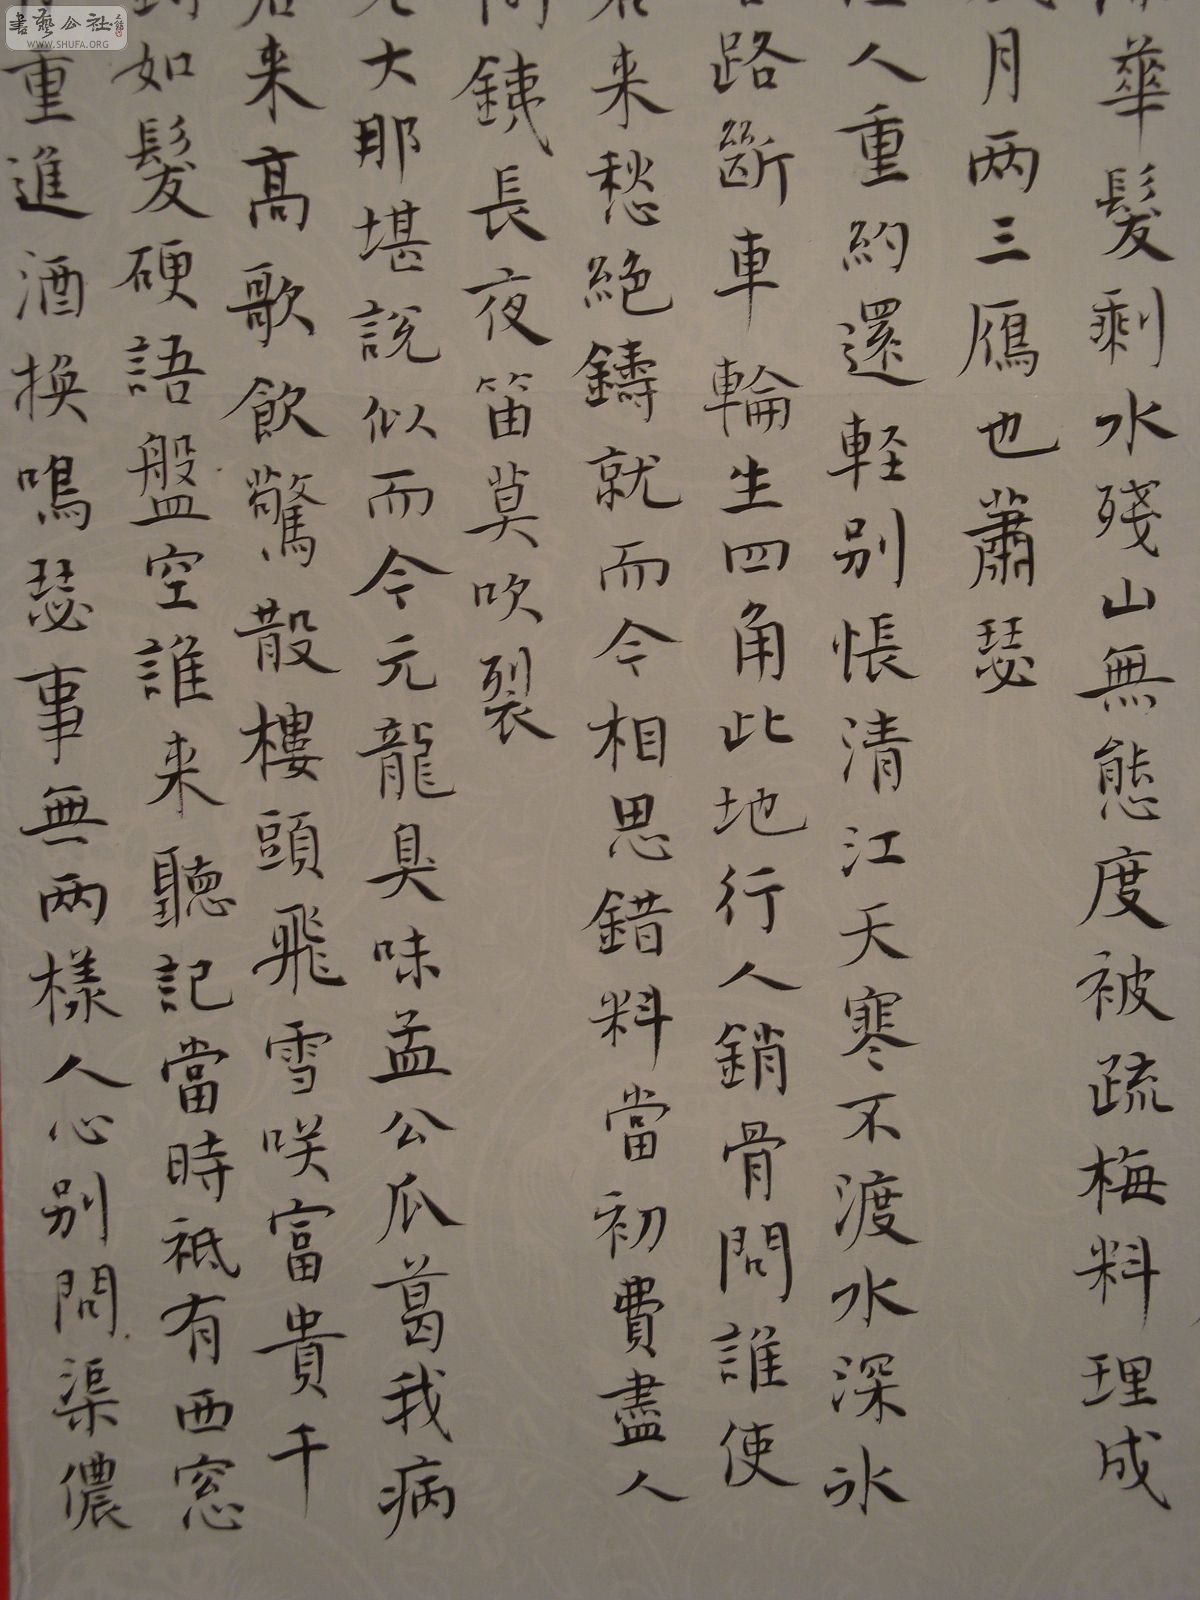 華髮剩水殘山無態度被疏梅料理成
月两三鴈也蕭瑟
人重約還軽别悵清江天寒不渡水深氷
路斷車輪生四角此地行人銷骨問誰使
来愁絶鑄就而今相思錯料當初費盡人
鐵長夜笛莫吹裂
大那堪説似而今元龍臭味孟公瓜葛我病
来髙歌飲驚散樓頭飛雪咲富貴千
如髮硬語盤空誰来聽記當時祗有西窓
重進酒換鳴瑟事無两樣人心别問渠儂
書藝公社
WWW.SHUFA.ORG